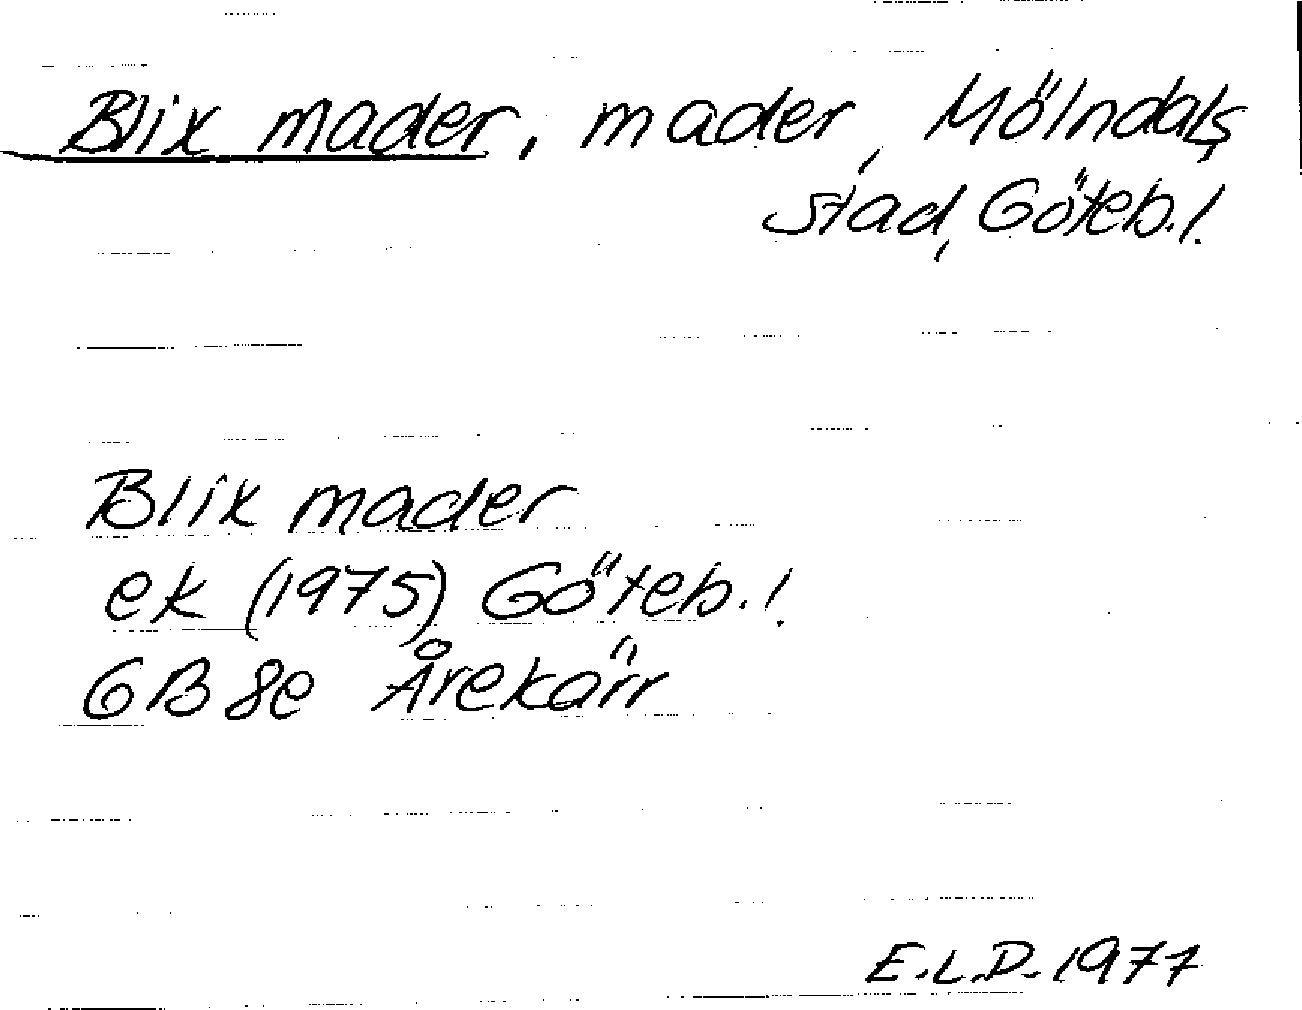 Blix mader, mader, Mölndals
stad, Göteb. l.
Blix mader
ek (1975) Göteb. l.
6B 8e Årekärr
E.L.D. 1977